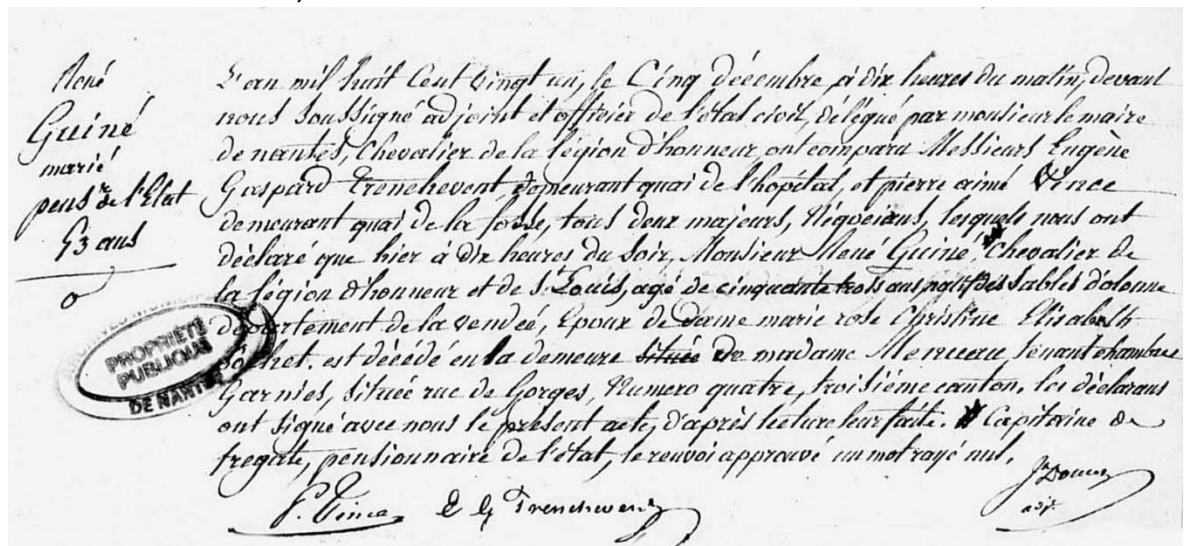 René
Guiné
marié
pens.re de l'Etat
53 ans
L'an mil huit Cent vingt un, le Cinq décembre à dix heures du matin, devant
nous Soussigné adjoint et officier de l'état civil, délégué par monsieur le maire
de nantes, Chevalier de la légion d'honneur ont comparu Messieurs Eugène
Gaspard Trenchevent, demeurant quai de l'hopital, et pierre aimé Vince
demeurant quai de la fosse, tous deux majeurs, Négocians, lesquels nous ont
déclaré que hier à dix heures du Soir, Monsieur René Guiné, Chevalier de
la légion d'honneur et de St. Louis, agé de cinquante trois ans natif des Sables d'olonne
département de la vendée, Epoux de Dame marie rose Christine Elisabeth
est décédé en la demeure située de madame Menuau tenant chambres
Garnies, Située rue de Gorges, Numero quatre, troisième canton. les déclarans
ont Signé avec nous le présent acte, d'après lecture leur faite. # Capitaine de
fregate, pensionnaire de l'état, le renvoi approuvé un mot rayé nul.
P. Vince E G Trenchevent
adj.
PROPRIÉTÉ
PUBLIQUE
DE NANTES